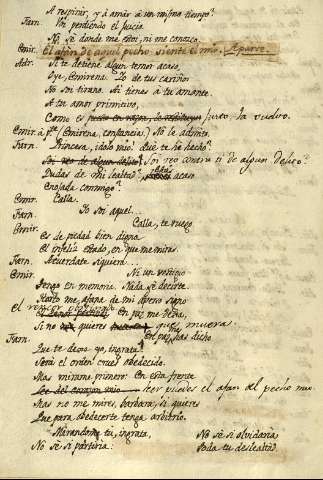 A respirir, y à amár à un mismo tiempo?
Farn. Voi perdiendo el juicio.
No sé donde me estoi, ni me conozco.
Emir. El afán de aquel pecho siente el mio. Aparte.
Adr. Si te detiene algun temor acaso,
Oye, Emirena. Yo de tus cariños
No soi tirano. Si tienes à tu amante.
A tu amor primitivo,
Como es justo la vuelvo.
Emir. à pte. (Emirena, constancia.) No le admito.
Farn. Princesa, idolo mio! Que te hé hecho?
Soi reo contra ti de algun delito?
Dudas de mi lealtad? estás acaso
Enojada conmigo?
Emir. Calla.
Farn. Yo soi aquel...
Emir. Calla, te ruego.
Es de piedad bien digno
El infeliz estado, en que me miras.
Farn. Acuerdate siquiera...
Emir. Ni un vestigio
Tengo en memoria. Nada sé decirte.
Harto me afana de mi ápero signo
El rencor En paz me dexa,
Si no quieres que muera.
Farn. En paz has dicho
Que te dexe yo, ingrata?
Será el orden cruel obedecido.
Mas mirame primero. En esta frente
Lee del corazon mio her puedes el afan del pecho mio
Mas no me mires, barbara, si quieres
Que para obedecerte tenga arbitrio.
Mirandome tu, ingrata, No sé si olvidaria
No sé si partiria: Toda tu deslealtad.